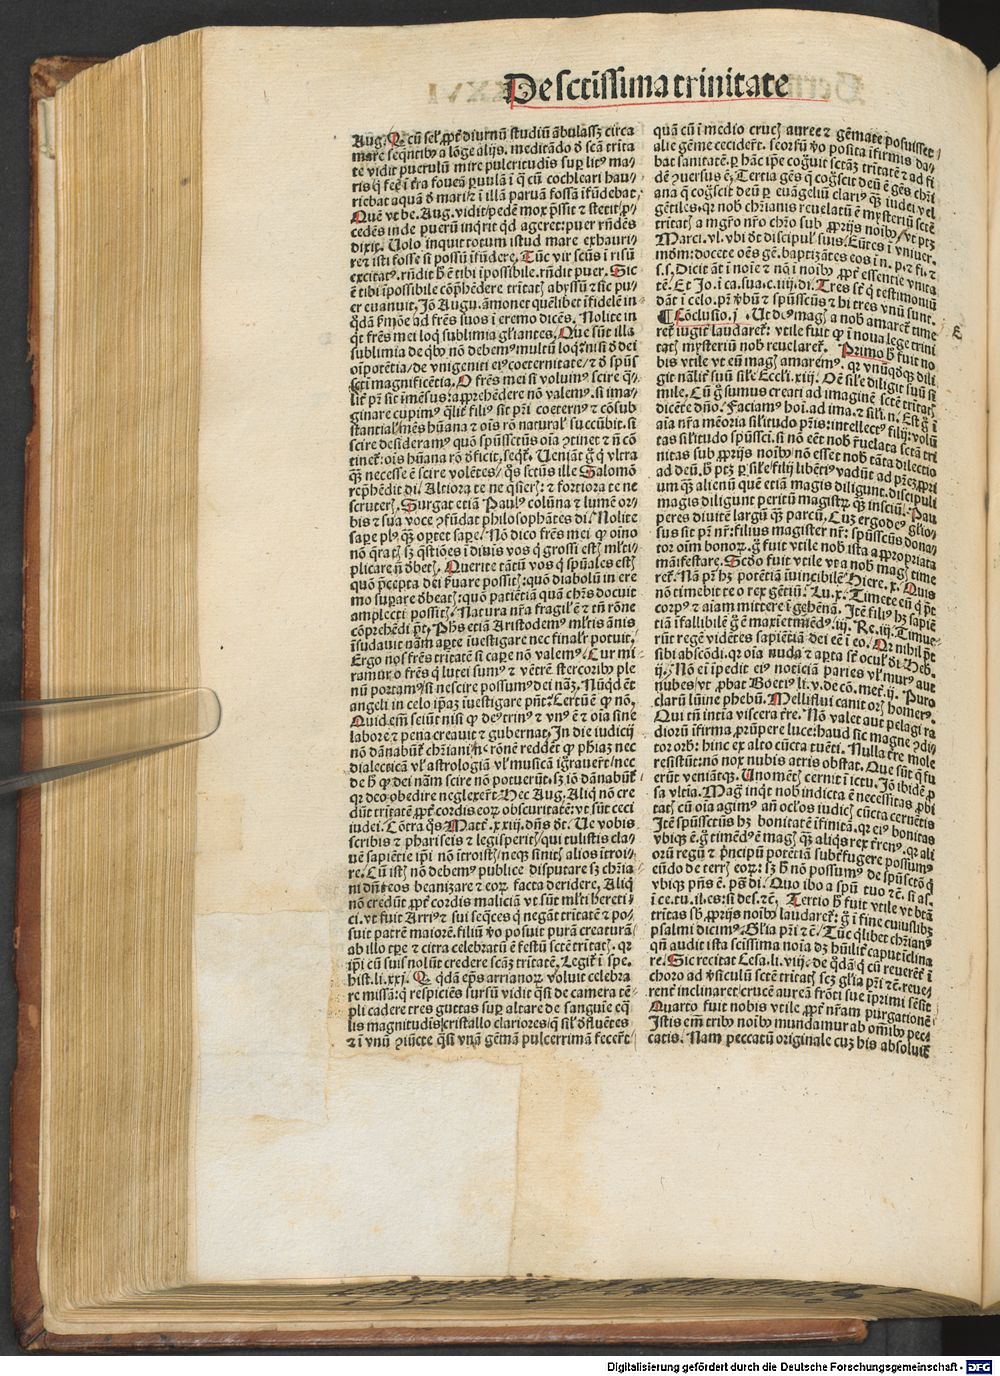 De sctissima trinitate
Aug. Q cū sel' ꝓpt̄ diurnū studiū ābulassꝫ circa
mare seqn̄tibꝰ a lōge alijs. meditādo d̄ scā trita
te vidit puerulū mire pulcritudis sup litꝰ ma/
ris q̇ fecit ī t̄ra foueā ꝑuulā ī q̇ cū cochleari hau/
riebat aquā d̄ mari/ ⁊ ī illā paruā fossā īfūdebat
Quē vt be. Aug. vidit/ pedē mox p̄ssit ⁊ stetit/ ꝓ/
cedēs inde puerū inq̇rit qd ageret: puer rn̄dēs
dixit. Uolo inquit totum istud mare exhauri/
re ⁊ isti fosse si possū īfūdere. Tūc vir scūs ī risū
excitatꝰ. rn̄dit h̄ ē tibi īpossibile. rn̄dit puer. Sic
ē tibi īpossibile cōp̄hēdere tritatꝫ abyssū ⁊ sic pu/
er euanuit. Jō Augu. āmonet quēlibet fidelē in
q̇dā ẜmōe ad frēs suos ī eremo dicēs. Nolite in
q̇t frēs mei loq̇ sublimia gl'iantes. Que sūt illa
sublimia de qbꝰ nō debemꝰ multū loq̇: nisi d̄ dei
oīpotētia/ de vnigeniti eiꝰ coeternitate/ ⁊ d̄ spūs
scti magnificētia. O frēs mei si volumꝰ scire q̄/
lit̄ pr̄ sit īmēsus: apprehēdere nō valemꝰ. si ima/
ginare cupimꝰ q̄lit̄ filiꝰ sit pr̄i coeternꝰ ⁊ cōsub
stantial' mēs hūana ⁊ ois rō natural' succūbit. si
scire desideramꝰ quō spūssctus oīa ꝯtinet ⁊ n̄ cō
tinet̄: ois hūana rō d̄ficit. seqt̄. Ueniāt ḡ q̇ vltra
qꝫ necesse ē scire volētes/ q̇s sctūs ille Salomō
rep̄hēdit di. Altiora te ne q̄sieris: ⁊ fortiora te ne
scruteris. Surgat etiā Paulꝰ colūna ⁊ lumē or/
bis ⁊ sua voce ꝯfūdat philosophātes di. Nolite
saꝑe plꝰ qꝫ oꝑtet saꝑe. Nō dico frēs mei ꝙ oīno
nō q̄ratis sꝫ q̄stiōes ī diuīs vos q̇ grossi estis ml'ti/
plicare n̄ d̄betis. Querite tātū vos q̇ sp̄uales estis
quō p̄cepta dei ẜuare possitis: quō diabolū in ere
mo suꝑare d̄beatis: quō patiētiā quā chr̄s docuit
amplecti possitis. Natura nr̄a fragil' ē ⁊ tn̄ rōne
cōprehēdi p̄t. Ph̄s etiā Aristodemꝰ ml'tis ānis
īsudauit nām aꝑte īuestigare nec final'r potuit.
Ergo nos frēs tritatē si caꝑe nō valemꝰ. Cur mi/
ramur o frēs q̇ lutei sumꝰ ⁊ vētrē stercoribꝰ ple
nū portamꝰ/ si nescire possumꝰ dei nāꝫ. Nūqd ēt
angeli in celo ip̄aꝫ īuestigare pn̄t: Certū ē ꝙ nō.
Quid em̄ sciūt nisi ꝙ deꝰ trinꝰ ⁊ vnꝰ ē ⁊ oīa sine
labore ⁊ pena creauit ⁊ gubernat. In die iudicij
nō dānabūt̄ chr̄iani/ nec rōnē reddēt ꝙ ph̄iaꝫ nec
dialecticā vl' astrologiā vl' musicā īgrauerīt/ nec
de h̄ ꝙ dei nām scire nō potuerūt. sꝫ iō dānabūt̄
qꝛ deo obedire neglexerīt. Hec Aug. Aliq̇ nō cre
dūt tritatē ꝓpt̄ cordis eoꝝ obscuritatē: vt sūt ceci
iudei. Cōtra q̇s Matt̄. xxiij. dn̄s dt̄. Ue vobis
scribis ⁊ phariseis ⁊ legisperitis/ qui tulistis cla/
uē sapiētie ip̄i nō ītroistis/ neqꝫ sinitis alios ītroi/
re. Cū istis nō debemꝰ publice disputare sꝫ chr̄ia/
ni dn̄t eos beanizare ⁊ eoꝝ facta deridere. Aliq̇
nō credūt ꝓpt̄ cordis maliciā vt sūt ml'ti hereti/
ci. vt fuit Arriꝰ ⁊ sui seqces q̇ negāt tritatē ⁊ po/
suit patrē maiorē. filiū v̄o posuit purā creaturā
ab illo tꝑe ⁊ citra celebratū ē festū sctē tritatis. qꝛ
ip̄i cū suis nolūt credere scāꝫ tritatē. Legit̄ ī spe.
hist. li. xxj. Q q̇dā ep̄s arrianoꝝ voluit celebra
re missā: q̇ respiciēs sursū vidit q̇si de camera tē/
pli cadere tres guttas suꝑ altare de sanguīe eq̄
lis magnitudis/ cristallo clariores/ q̇ sil' d̄fluētes
⁊ ī vnū ꝯiūcte q̄si vnā gēmā pulcerrimā fecerīt
quā cū ī medio crucis auree ⁊ gēmate posuisset
alie gēme ceciderīt. seorsū v̄o posita īfirmis da/
bat sanitatē. ꝑ hāc ip̄e cogūit sctāꝫ tritatē ⁊ ad fi
dē ꝯuersus ē. Tertia gēs q̇ cogscit deū ē gēs chr̄i
ana q̇ cogscit deū ꝑ euāgeliū clariꝰ qꝫ iudei vel
gētiles. qꝛ nob̄ chr̄ianis reuelatū ē mysteriū sctē
tritatis a mgr̄o nr̄o chr̄o sub ꝓprijs noībꝰ/ vt ptꝫ
Marci. vl. vbi dt̄ discipul' suis. Eūtes ī vniuer.
mōm: docete oēs gē. baptizātes eos ī n. p. ⁊ fi. ⁊
s.s. Dicit āt ī noīe ⁊ nō ī noībꝰ ꝓpt̄ essentie vnita
tē. Et Jo. ī ca. sua. c. iiij. di. Tres st̄ q̇ testimoniū
dāt ī celo. pr̄ vbū ⁊ spūssctūs ⁊ hi tres vnū sunt.
¶ Cōclusio. j. Ut deꝰ magis a nob̄ amaret̄ time
ret̄ iugit̄ laudaret̄: vtile fuit ꝙ ī noua lege trini
tatis mysteriū nob̄ reuelaret̄. Primo h̄ fuit no
bis vtile vt eū magis amaremꝰ. qꝛ vnūqdqꝫ dili
git nālit̄ suū sil'e Eccl'i. xiij. Oē sil'e diligit suū si
mile. Cū ḡ sumus creati ad imaginē sctē tritatis
dicēte dn̄o. Faciamꝰ hoī. ad ima. ⁊ sil'i. n. Est ḡ ī
aīa nr̄a mēoria sil'itudo pr̄is: intellectꝰ filij: volū
tas sil'itudo spūssci. si nō eēt nob̄ ẜuelata sctā tri
nitas sub ꝓprijs noībꝰ/ nō esset nob̄ tāta dilectio
ad deū. h̄ ptꝫ ꝑ sil'e/ filij libētiꝰ vadūt ad pr̄ēꝫ ꝓpri
um qꝫ alienū quē etiā magis diligunt. discipuli
magis diligunt peritū magistꝝ qꝫ insciū. Pau
peres diuitē largū qꝫ parcū. Cuꝫ ergo deꝰ gl'io/
sus sit pr̄ nr̄: filius magister nr̄: spūssctūs dona/
tor oīm bonoꝝ. ḡ fuit vtile nob̄ ista appropriata
māifestare. Scdo fuit vtile vt a nob̄ magis time
ret̄. Nā pr̄ hꝫ potētiā īuincibilē Hiere. x. Quis
nō timebit te o rex gētiū. Lu. x. Timete eū q̇ p̄t
corpꝰ ⁊ aīam mittere ī gehēnā. Itē filiꝰ hꝫ sapiē
tiā īfallibilē ḡ ē maxie timēdꝰ. iij. Re. iij. Timue/
rūt regē vidētes sapiētiā dei eē ī eo. Qꝛ nihil p̄t
sibi abscōdi. qꝛ oīa nuda ⁊ aꝑta st̄ ocul' d̄i Heb.
ij. Nō ei īpedit eiꝰ noticiā paries vl' murꝰ aut
nubes/ vt ꝓbat Boetiꝰ li. v. de cō. met̄. ij. Puro
clarū lumīe phebū. Melliflui canit oris homerꝰ.
Qui tn̄ intia viscera t̄re. Nō valet aut pelagi ra
diorū īfirma ꝓrūpere luce: haud sic magne ꝯdi/
tor orbis: hinc ex alto cūcta tuēti. Nulla t̄re mole
resistūt: nō nox nubis atris obstat. Que sūt q̄ fu
erūt veniātqꝫ. Uno mētis cernit ī ictu. Jō ibidē ꝑ
sa vltia. Magꝫ inqt nob̄ indicta ē necessitas ꝓbi
tatis cū oīa agimꝰ an̄ ocl'os iudicis cūcta cernētis
Itē spūssctūs hꝫ bonitatē īfinitā. qꝛ eiꝰ bonitas
vbiqꝫ ē. ḡ timēdꝰ ē magis qꝫ aliqs rex t̄renꝰ. qꝛ ali
orū regū ⁊ p̄ncipū potētiā subt̄fugere possumꝰ
eūdo de terris eoꝝ: sꝫ h̄ nō possumꝰ de spūsctō q̇
vbiqꝫ pn̄s ē. ps̄ di. Quo ibo a spū tuo ⁊c̄. si as.
ī ce. tu. il. es: si des. ⁊c̄. Tertio h̄ fuit vtile vt btā
tritas sb̄ ꝓprijs noībꝰ laudaret̄: ḡ ī fine cuiuslibꝫ
psalmi dicimꝰ. Gl'ia pr̄i ⁊c̄. Tūc q̇libet chr̄ianꝰ
qn̄ audit ista sctissima noīa dꝫ hūilit̄ caput īclina
re. Sic recitat Cesa. li. viij. de q̇dā q̇ cū reuerēt̄ ī
choro ad v̄siculū sctē tritatis scꝫ gl'ia pr̄i ⁊c̄. reue/
rent̄ inclinaret/ crucē aureā frōti sue īprimi sēsit
Quarto fuit nobis vtile ꝓpt̄ nr̄am purgationē
Istis em̄ tribꝰ noībꝰ mundamur ab oībꝰ pec/
catis. Nam peccatū originale cuꝫ his absoluit̄
E
Digitalisierung gefördert durch die Deutsche Forschungsgemeinschaft - DFG